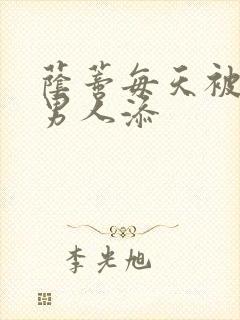 蔭蒂每天被
男人添
李光旭